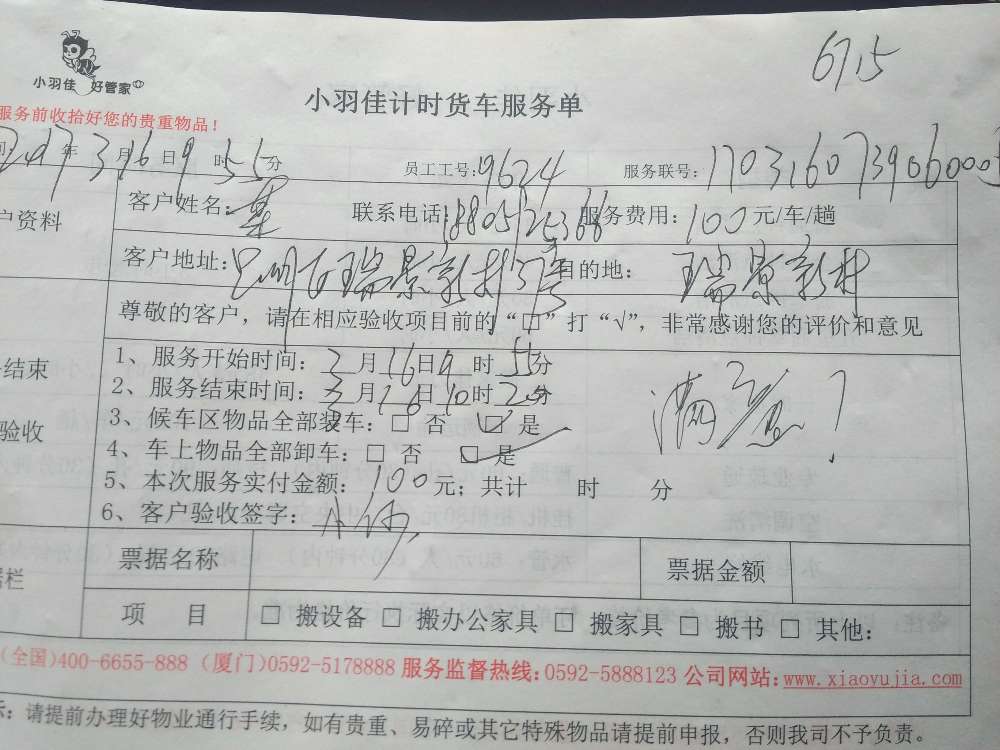 6715
小羽佳 好管家
小羽佳计时货车服务单
服务前收拾好您的贵重物品！
年3月16日9时55分 员工工号:9624 服务联号:
户资料 客户姓名: 联系电话: 服务费用: 100元/车/趟
客户地址: 瑞景新村 目的地: 瑞景新村
尊敬的客户，请在相应验收项目前的“口”打“√”，非常感谢您的评价和意见
结束 1、服务开始时间: 月16日9时55分
2、服务结束时间: 3月16日10时20分
满意!
验收 3、候车区物品全部装车: □ 否 □ 是
4、车上物品全部卸车: □ 否 □ 是
5、本次服务实付金额: 100元; 共计 时 分
6、客户验收签字:
栏 票据名称 票据金额
项 目 □ 搬设备 □ 搬办公家具 □ 搬家具 □ 搬书 □ 其他:
(全国)400-6655-888 (厦门)0592-5178888 服务监督热线:0592-5888123 公司网站:www.xiaoyujia.com
示: 请提前办理好物业通行手续，如有贵重、易碎或其它特殊物品请提前申报，否则我司不予负责。